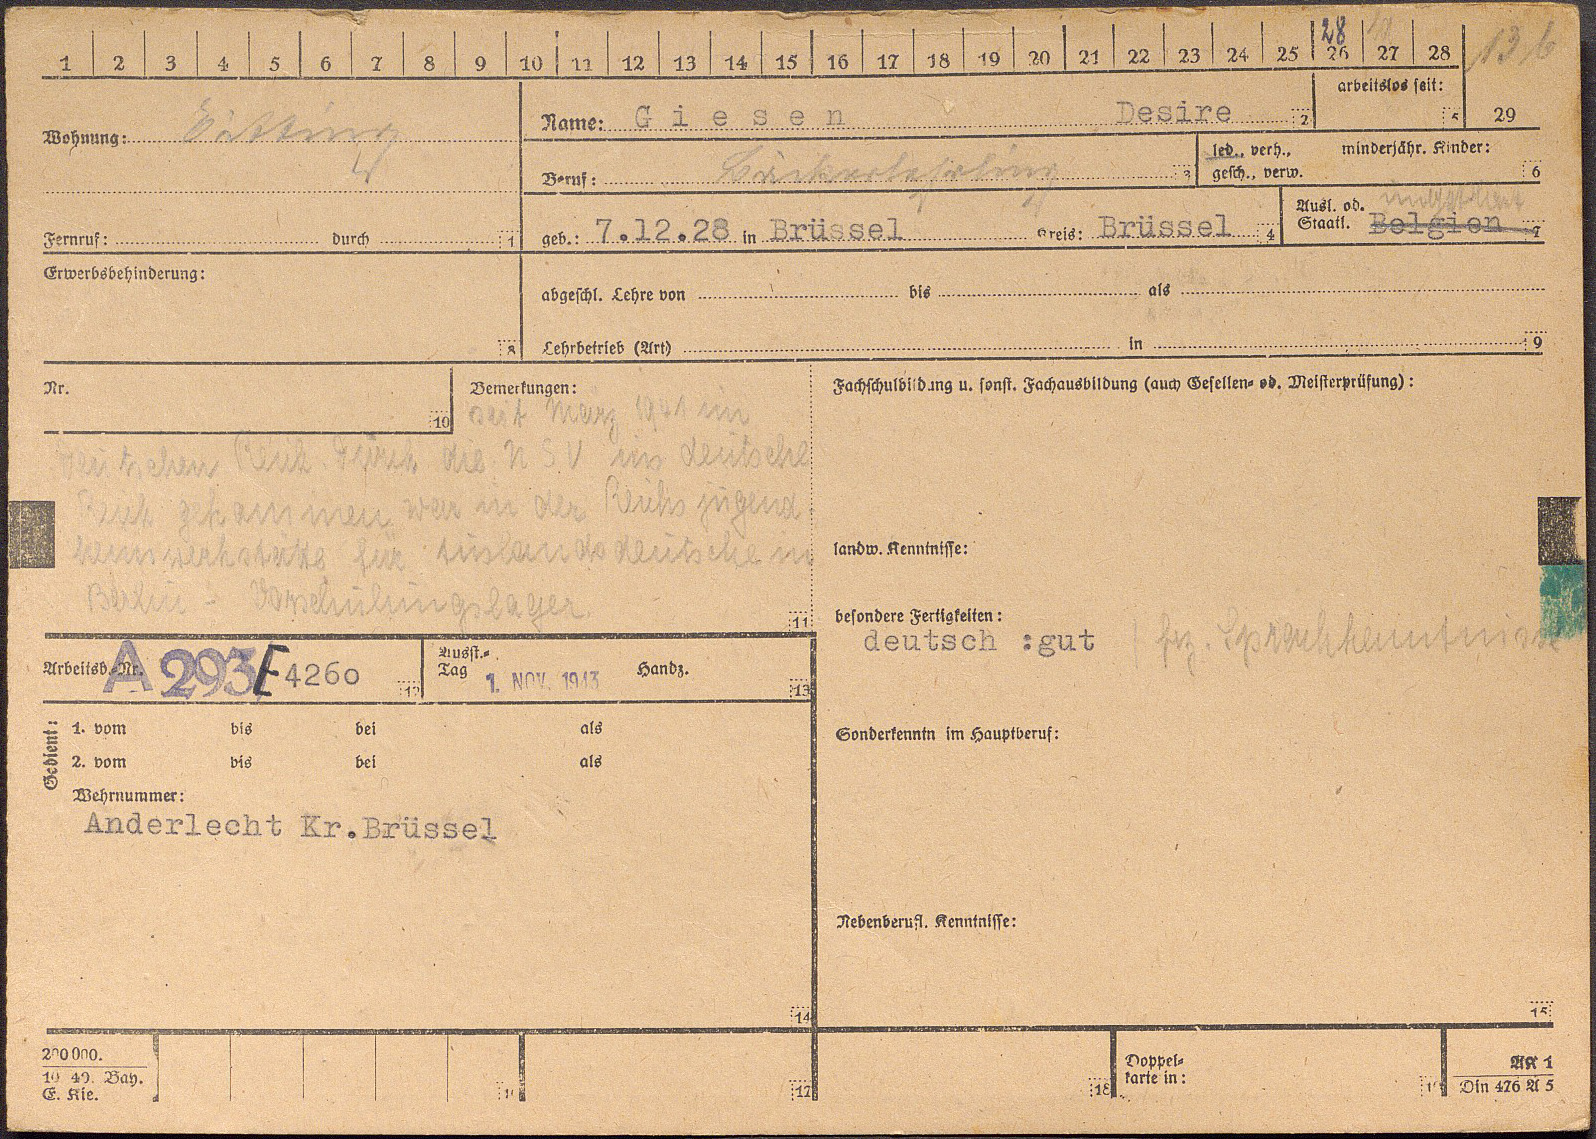 1 2 3 4 5 6 7 8 9 10 11 12 13 14 15 16 17 18 19 20 21 22 23 24 25 26 27 28
28
13 b
29
Wohnung:
Name: Giesen Desire 2
arbeitslos seit: 5
Beruf: Bäckerlehrling 3
led., verh., minderjähr. Kinder:
gesch., verw. 6
Fernruf: durch 1
geb.: 7.12.28 in Brüssel Kreis: Brüssel 4
Ausl. od.
Staatl. Belgien 7
Erwerbsbehinderung:
8
abgeschl. Lehre von bis als
Lehrbetrieb (Art) in 9
Nr.
10
Bemerkungen:
seit März 1941 im
deutschen Reich. Durch die NSV ins deutsche
Reich gekommen war in der Reichsjugend
heimwerkstätte für Auslandsdeutsche in
Berlin - Vorschulungslager.
11
Fachschulbildung u. sonst. Fachausbildung (auch Gesellen- od. Meisterprüfung):
landw. Kenntnisse:
besondere Fertigkeiten:
deutsch :gut / frz. Sprachkenntnisse
Arbeitsb.-Nr. A 293/E 4260 12
Ausst.-
Tag 1. NOV. 1943 Handz. 13
Gedient:
1. vom bis bei als
2. vom bis bei als
Wehrnummer:
Anderlecht Kr.Brüssel
14
Sonderkenntn im Hauptberuf:
Nebenberufl. Kenntnisse:
15
200 000.
10 40. Bay.
E. Kie.
16
17
18
Doppel-
karte in:
19
AK 1
Din 476 A 5